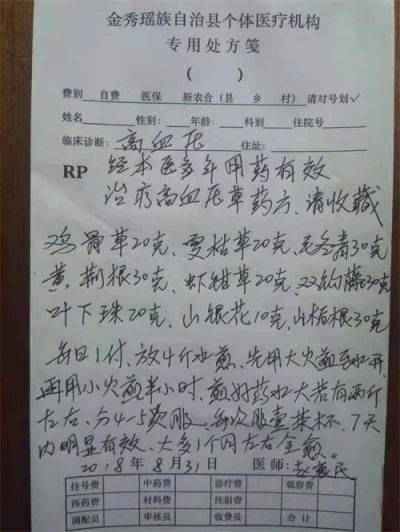 金秀瑶族自治县个体医疗机构
专用处方笺
(   )
费别 自费 医保 新农合(县 乡 村) 请对号划√
姓名 性别: 年龄: 科别 住院号
临床诊断: 高血压 住址:
RP 经本医多年用药有效
治疗高血压草药方、请收藏
鸡骨草20克、夏枯草20克、毛冬青30克
黄荆根30克、虾钳草20克、双钩藤30克
叶下珠20克、山银花10克、山栀根30克
每日1付、放4斤水煎、先用大火煎至水开
再用小火煎半小时、煎好药水大若有两斤
左右、分4-5次服、每次服壹茶杯、7天
内明显有效、大多1个月左右全愈。
2018年8月31日 医师:
挂号费 中药费 诊疗费 观察费
西药费 材料费 注射费
调配员 审核员 收费员 合计